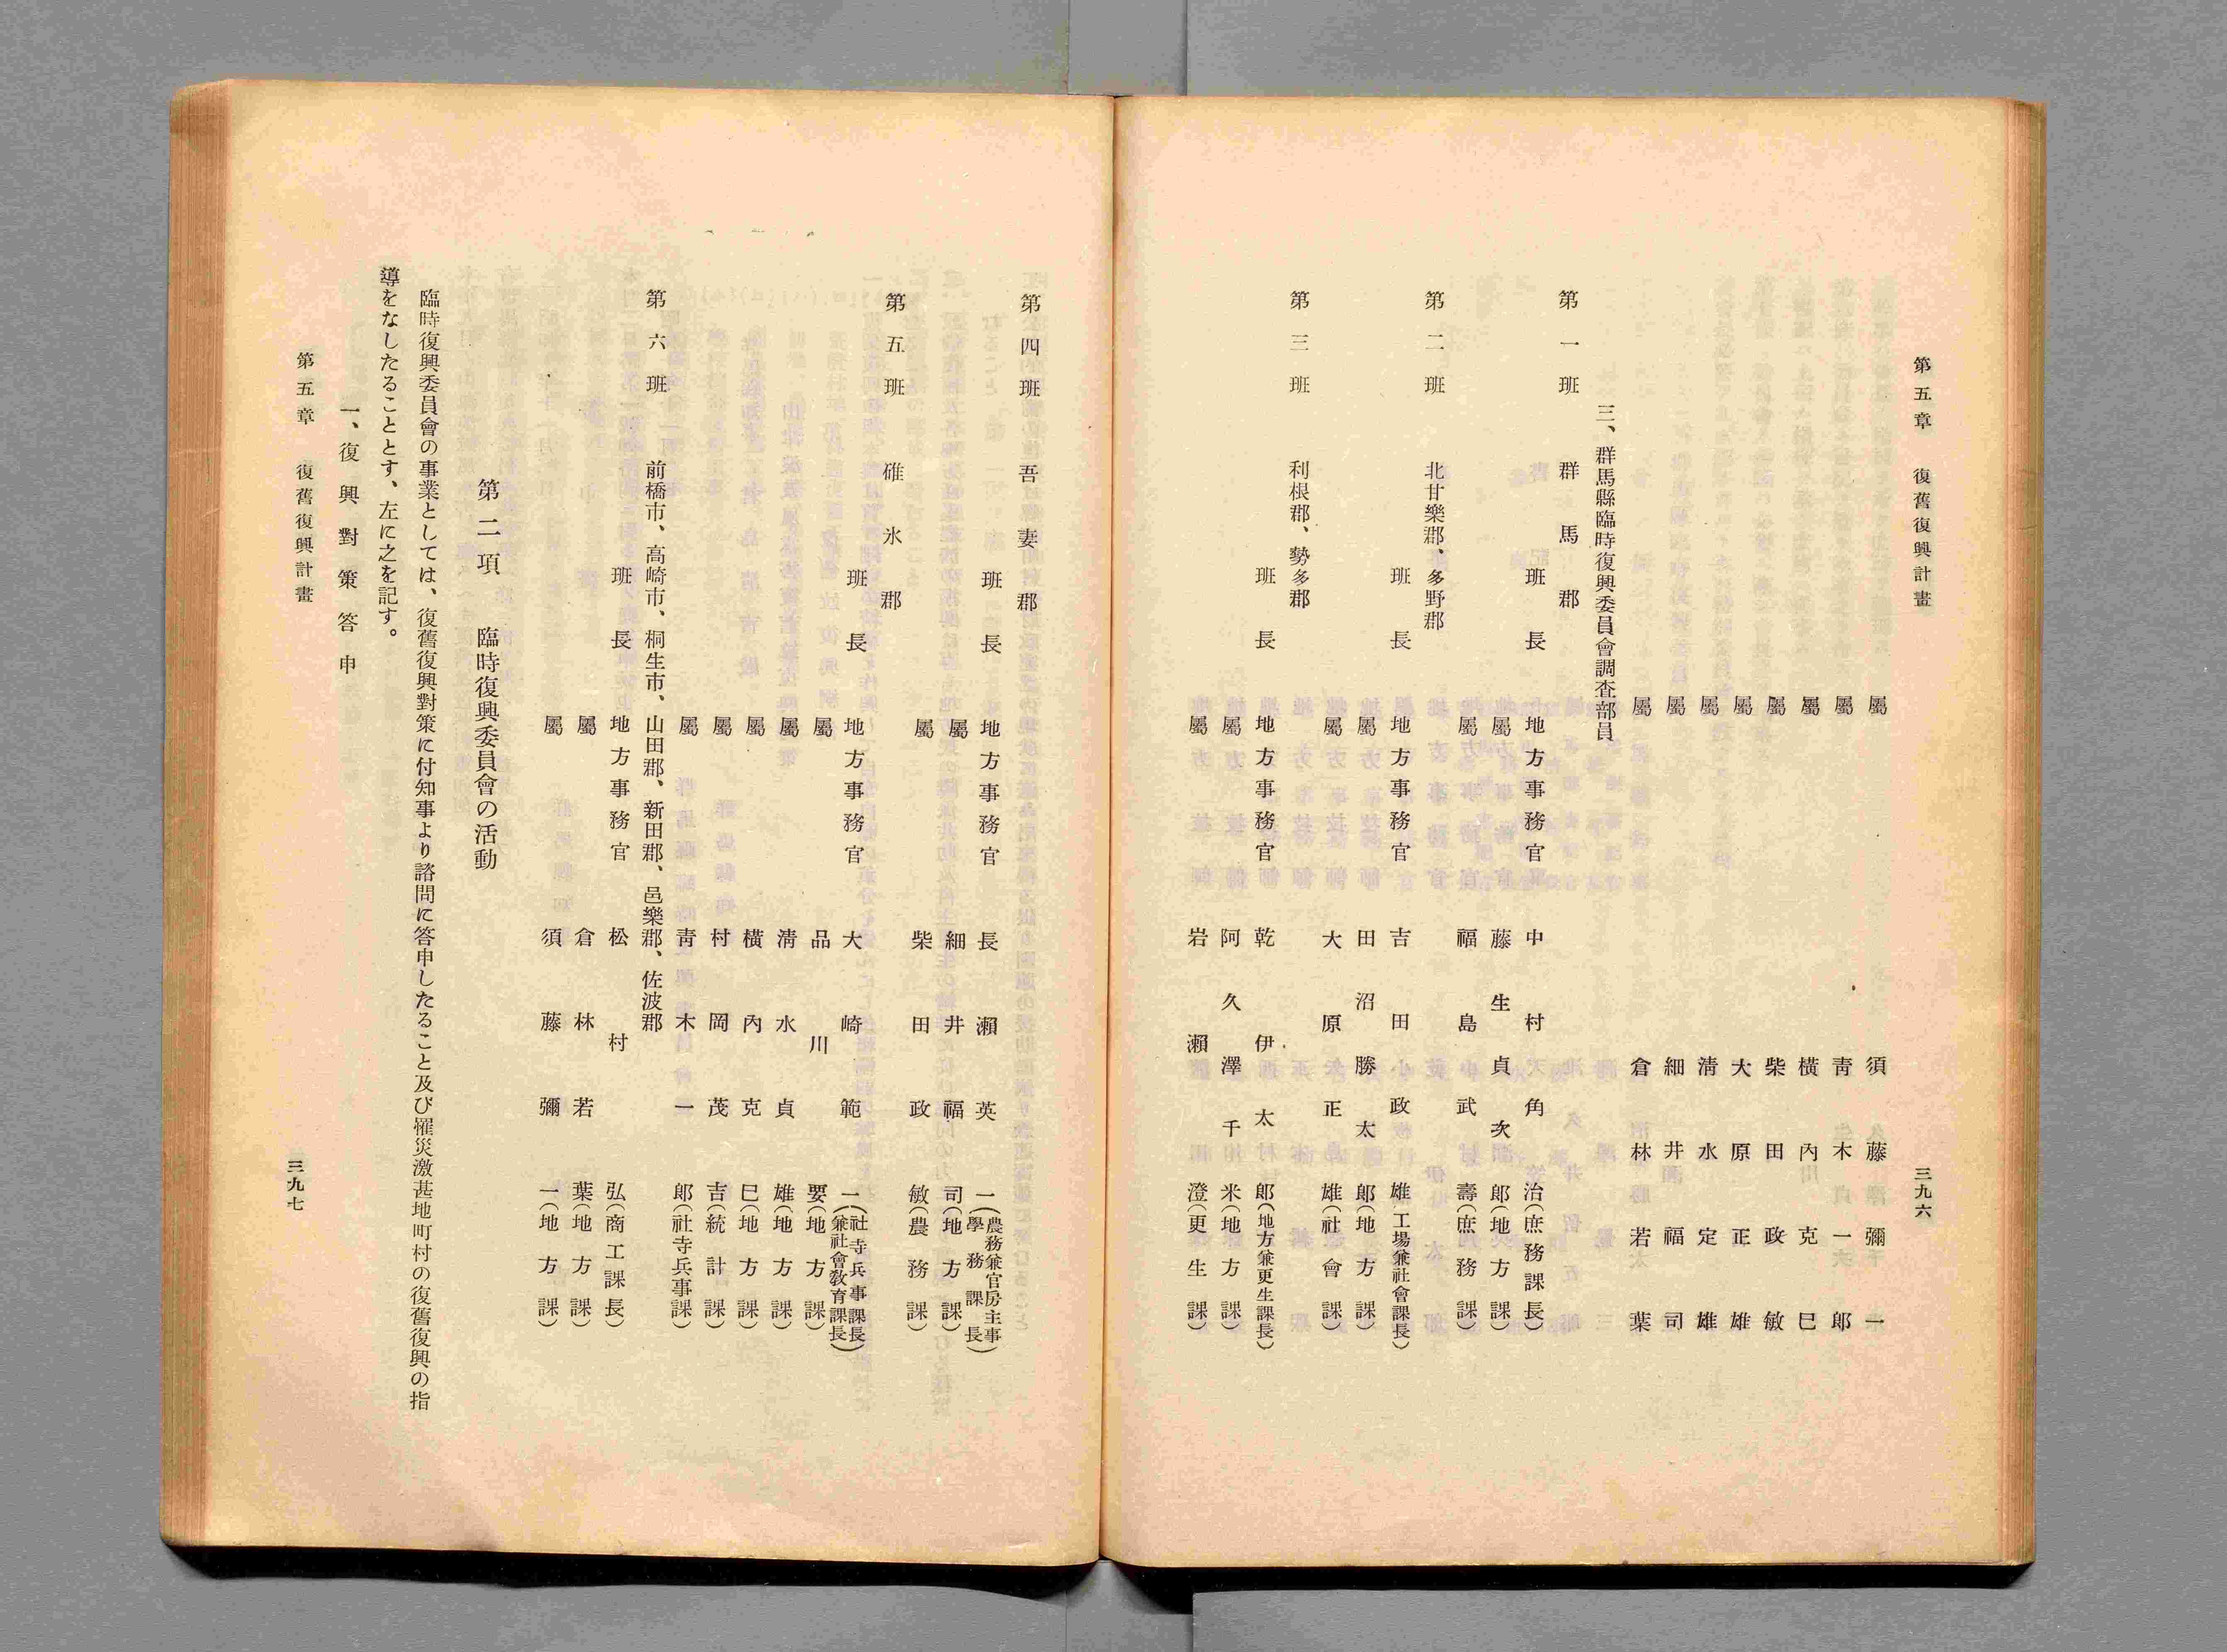 第五章　復舊復興計畫
三九六
屬　須藤彌一
屬　靑木一郎
屬　橫內克巳
屬　柴田政敏
屬　大原正雄
屬　淸水定雄
屬　細井福司
屬　倉林若葉
三、群馬縣臨時復興委員會調査部員
第一班　群馬郡
班長　地方事務官　中村角治（庶務課長）
屬　藤生貞次郎（地方課）
屬　福島武壽（庶務課）
第二班　北甘樂郡、多野郡
班長　地方事務官　吉田政雄（工場兼社會課長）
屬　田沼勝太郎（地方課）
屬　大原正雄（社會課）
第三班　利根郡、勢多郡
班長　地方事務官　乾伊太郎（地方兼更生課長）
屬　阿久澤千米（地方課）
屬　岩瀨澄（更生課）
第四班　吾妻郡
班長　地方事務官　長瀨英一（農務兼官房主事學務課長）
屬　細井福司（地方課）
屬　柴田政敏（農務課）
第五班　碓氷郡
班長　地方事務官　大崎範一（社寺兵事課長兼社會敎育課長）
屬　品川要（地方課）
屬　淸水貞雄（地方課）
屬　橫內克巳（地方課）
屬　村岡茂吉（統計課）
屬　靑木一郎（社寺兵事課）
第六班　前橋市、高崎市、桐生市、山田郡、新田郡、邑樂郡、佐波郡
班長　地方事務官　松村弘（商工課長）
屬　倉林若葉（地方課）
屬　須藤彌一（地方課）
第二項　臨時復興委員會の活動
臨時復興委員會の事業としては、復舊復興對策に付知事より諮問に答申したること及び罹災激甚地町村の復舊復興の指
導をなしたることとす、左に之を記す。
一、復興對策答申
第五章　復舊復興計畫
三九七